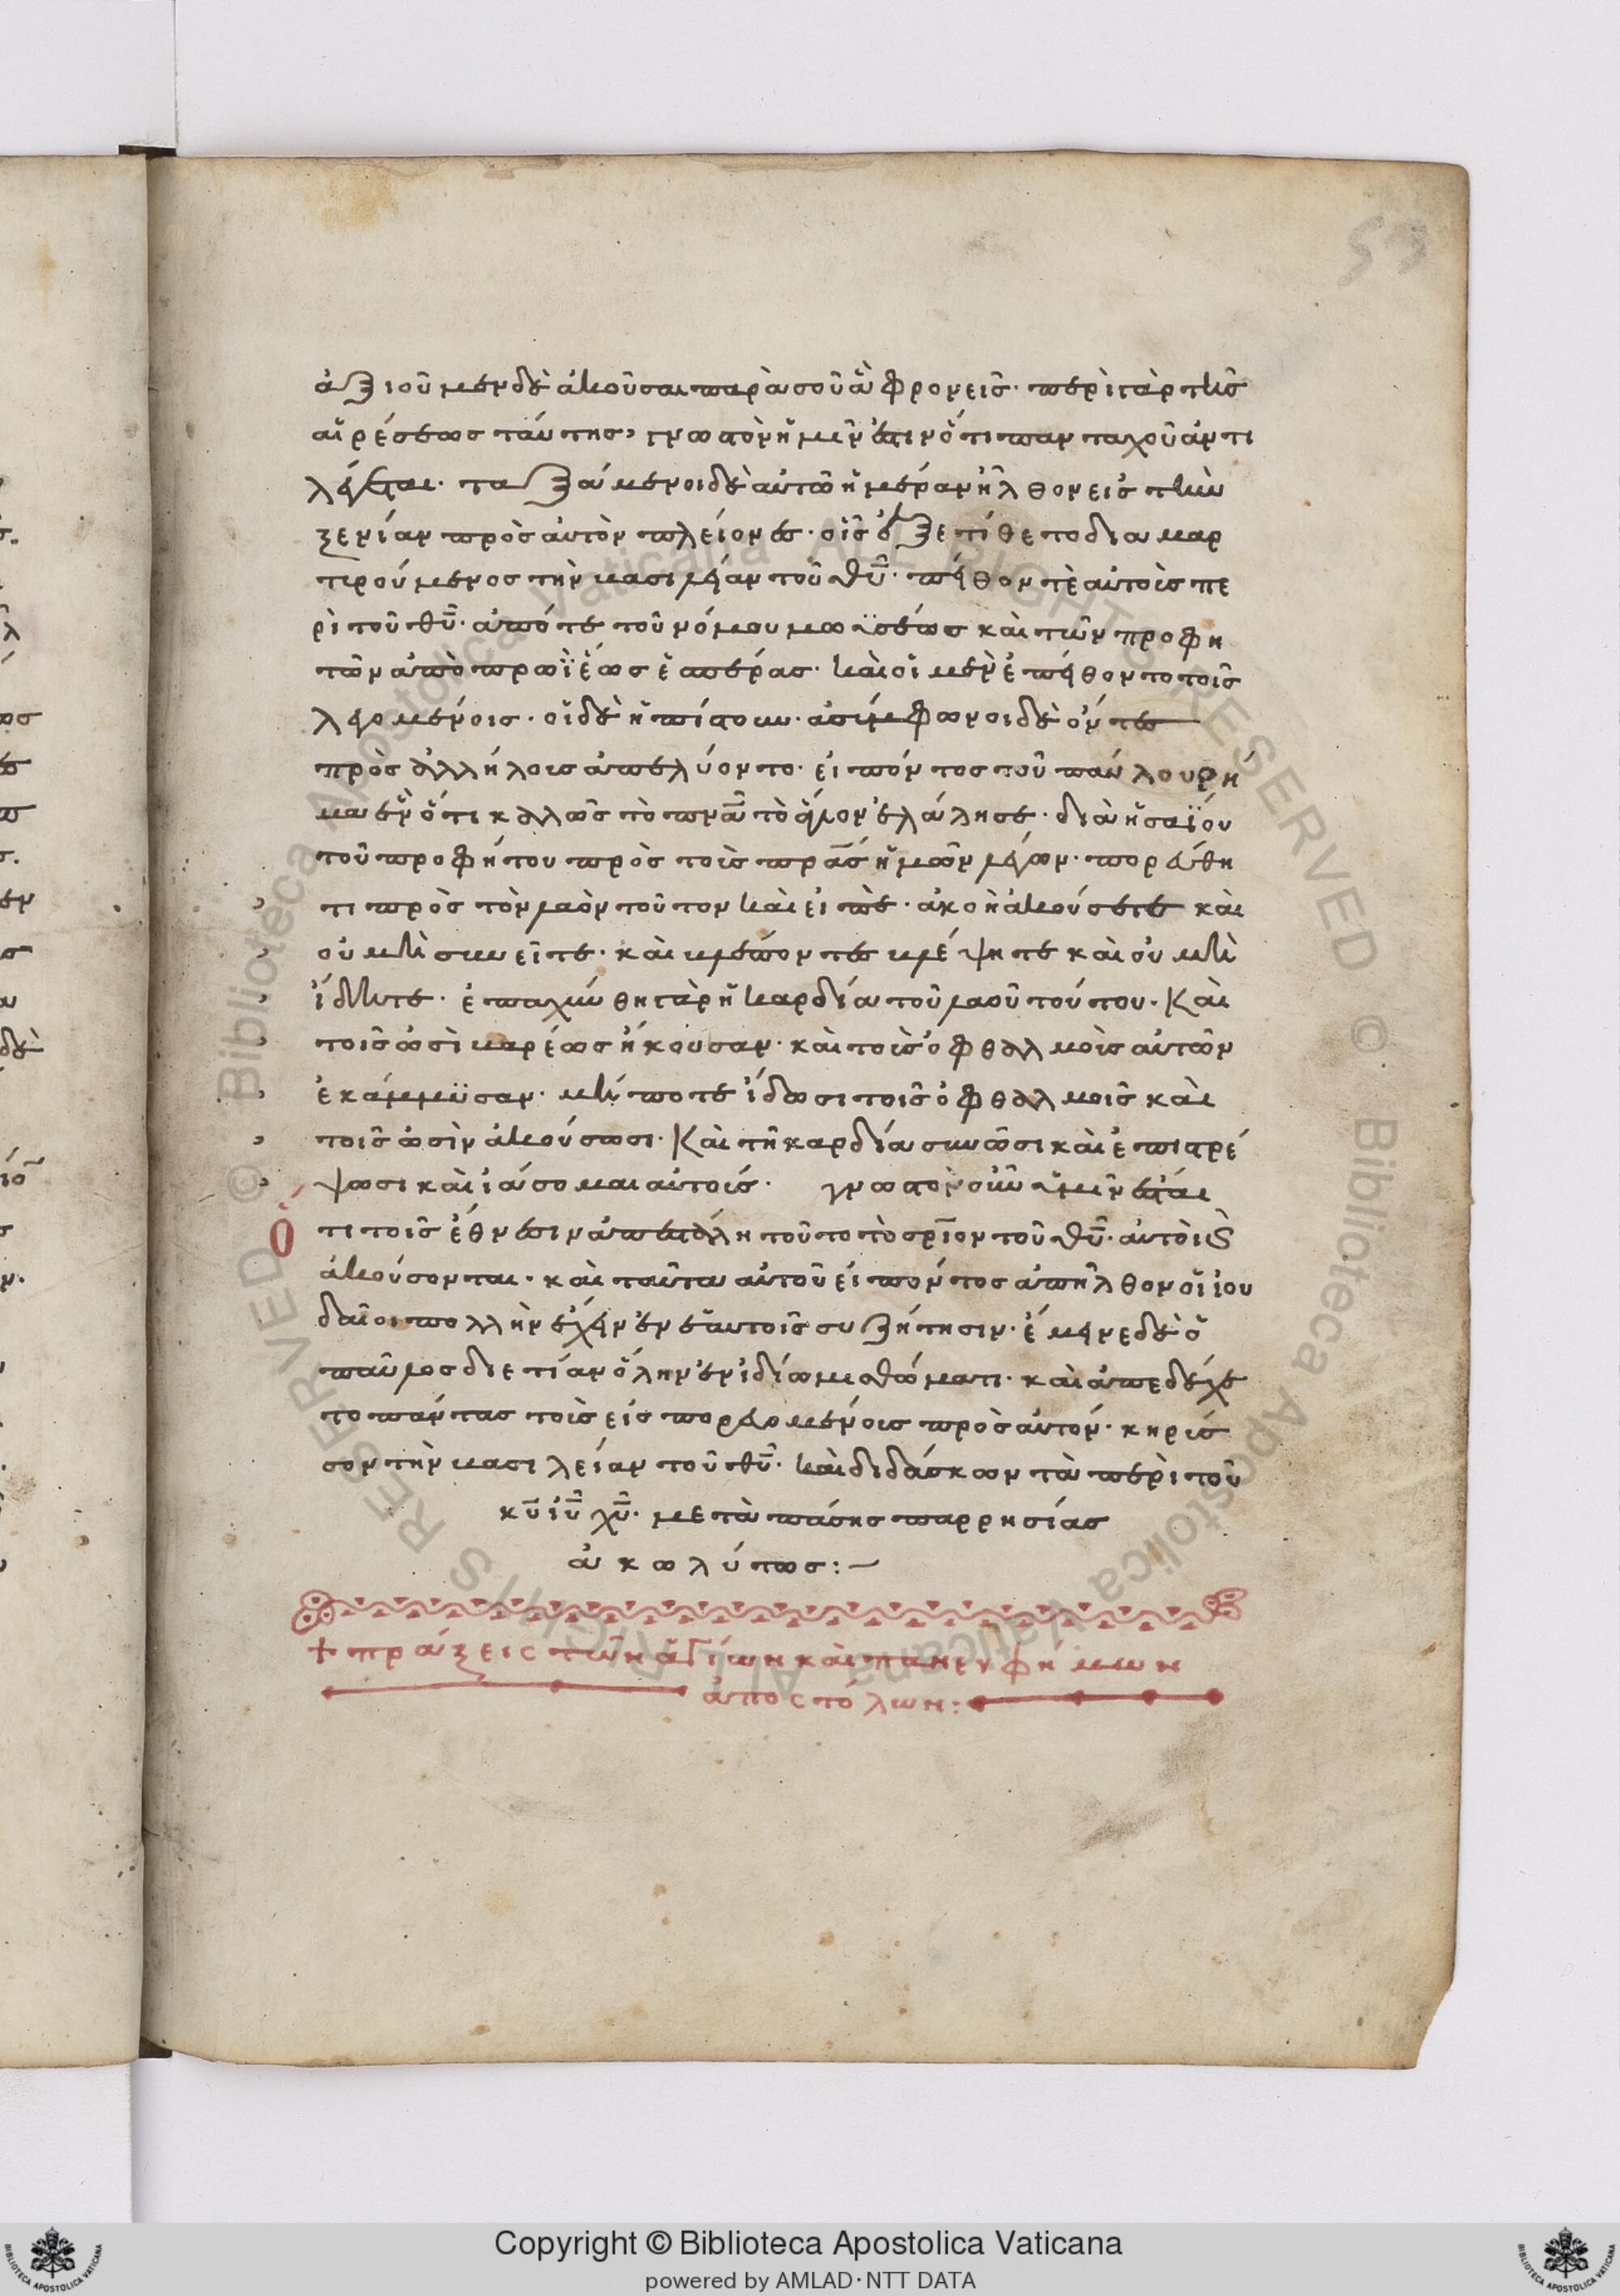 53
ἀξιοῦμεν δὲ ἀκοῦσαι παρὰ σοῦ ἃ φρονεῖς· περὶ γὰρ τῆς
αἱρέσεως ταύτης, γνωστὸν ἡμῖν ἐστιν ὅτι πανταχοῦ ἀντι
λέγεται· ταξάμενοι δὲ αὐτῶ ἡμέραν ἦλθον εἰς τὴν
ξενίαν πρὸς αὐτὸν πλείονες· οἷς ἐξετίθετο διαμαρ
τυρούμενος τὴν βασιλείαν τοῦ θῦ· πείθων τὲ αὐτοὺς πε
ρὶ τοῦ θῦ· ἀπό τε τοῦ νόμου μωϋσέως καὶ τῶν προφη
τῶν ἀπὸ πρωῒ ἕως ἑσπέρας· καὶ οἱ μὲν ἐπείθοντο τοῖς
λεγομένοις· οἱ δὲ ἠπίστουν· ἀσύμφωνοι δὲ ὄντες
πρὸς ἀλλήλους ἀπελύοντο· εἰπόντος τοῦ παύλου ῥῆ
μα ἓν ὅτι καλῶς τὸ πνᾶ τὸ ἅγιον ἐλάλησε· διὰ ἡσαΐου
τοῦ προφήτου πρὸς τοὺς πρᾶς ἡμῶν λέγων· πορεύθη
τι πρὸς τὸν λαὸν τοῦτον καὶ εἰπὲ· ἀκοῆ ἀκούσετε καὶ
οὐ μὴ συνεῖτε· καὶ βλέποντες βλέψητε καὶ οὐ μὴ
ἴδητε· ἐπαχύνθη γὰρ ἡ καρδία τοῦ λαοῦ τούτου· Καὶ
τοῖς ὠσὶ βαρέως ἤκουσαν· καὶ τοὺς ὀφθαλμοὺς αὐτῶν
ἐκάμμυσαν· μήποτε ἴδωσι τοῖς ὀφθαλμοῖς καὶ
τοῖς ὠσὶν ἀκούσωσι· Καὶ τῆ καρδία συνῶσι καὶ ἐπιστρέ
ψωσι καὶ ἰάσομαι αὐτούς· γνωστὸν οὖν ὑμῖν ἔσται
Ὅ τι τοῖς ἔθνεσιν ἀπεστάλη τοῦτο τὸ σρῖον τοῦ θῦ· αὐτοὶ ς
ἀκούσονται· καὶ ταῦτα αὐτοῦ εἰπόντος ἀπῆλθον οἱ ἰου
δαῖοι πολλὴν ἔχειν ἐν ἑαυτοῖς συζήτησιν· ἔμεινε δὲ ὁ
παῦλος διετίαν ὅλην ἐν ἰδίω μισθώματι· καὶ ἀπεδέχε
το πάντας τοὺς εἰσπορευομένους πρὸς αὐτόν· κηρύς
σον τὴν βασιλείαν τοῦ θῦ· καὶ διδάσκων τὰ περὶ τοῦ
κῦ ἰῦ χῦ· μετὰ πάσης παρρησίας
ἀκωλύτως:—
+ πράξεις τῶν ἁγίων καὶ πανευφήμων
ἀποστόλων:
© Biblioteca Apostolica Vaticana ALL RIGHTS RESERVED © Biblioteca Apostolica Vaticana ALL RIGHTS RESERVED
Copyright © Biblioteca Apostolica Vaticana
powered by AMLAD·NTT DATA